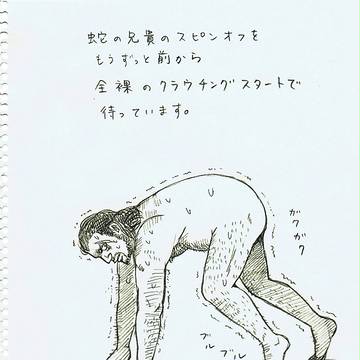 蛇の兄貴のスピンオフを
もうずっと前から
全裸のクラウチングスタートで
待っています。
ガク
ガク
ブル
ブル